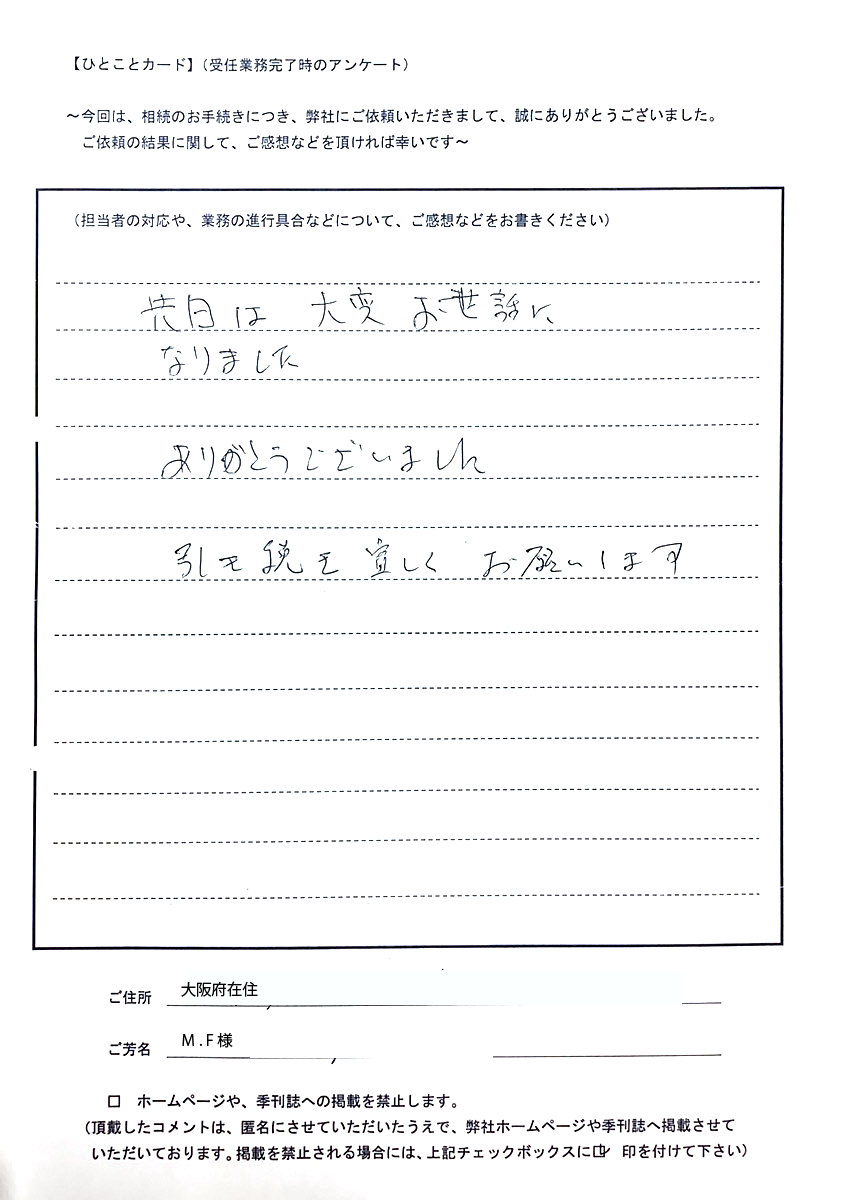 【ひとことカード】（受任業務完了時のアンケート）
～今回は、相続のお手続きにつき、弊社にご依頼いただきまして、誠にありがとうございました。
ご依頼の結果に関して、ご感想などを頂ければ幸いです～
（担当者の対応や、業務の進行具合などについて、ご感想などをお書きください）
先日は 大変 お世話に
なりました
ありがとうございました
引き続き宜しく お願いします
ご住所 大阪府在住
ご芳名 M.F様
□ ホームページや、季刊誌への掲載を禁止します。
（頂戴したコメントは、匿名にさせていただいたうえで、弊社ホームページや季刊誌へ掲載させて
いただいております。掲載を禁止される場合には、上記チェックボックスに☑ 印を付けて下さい）